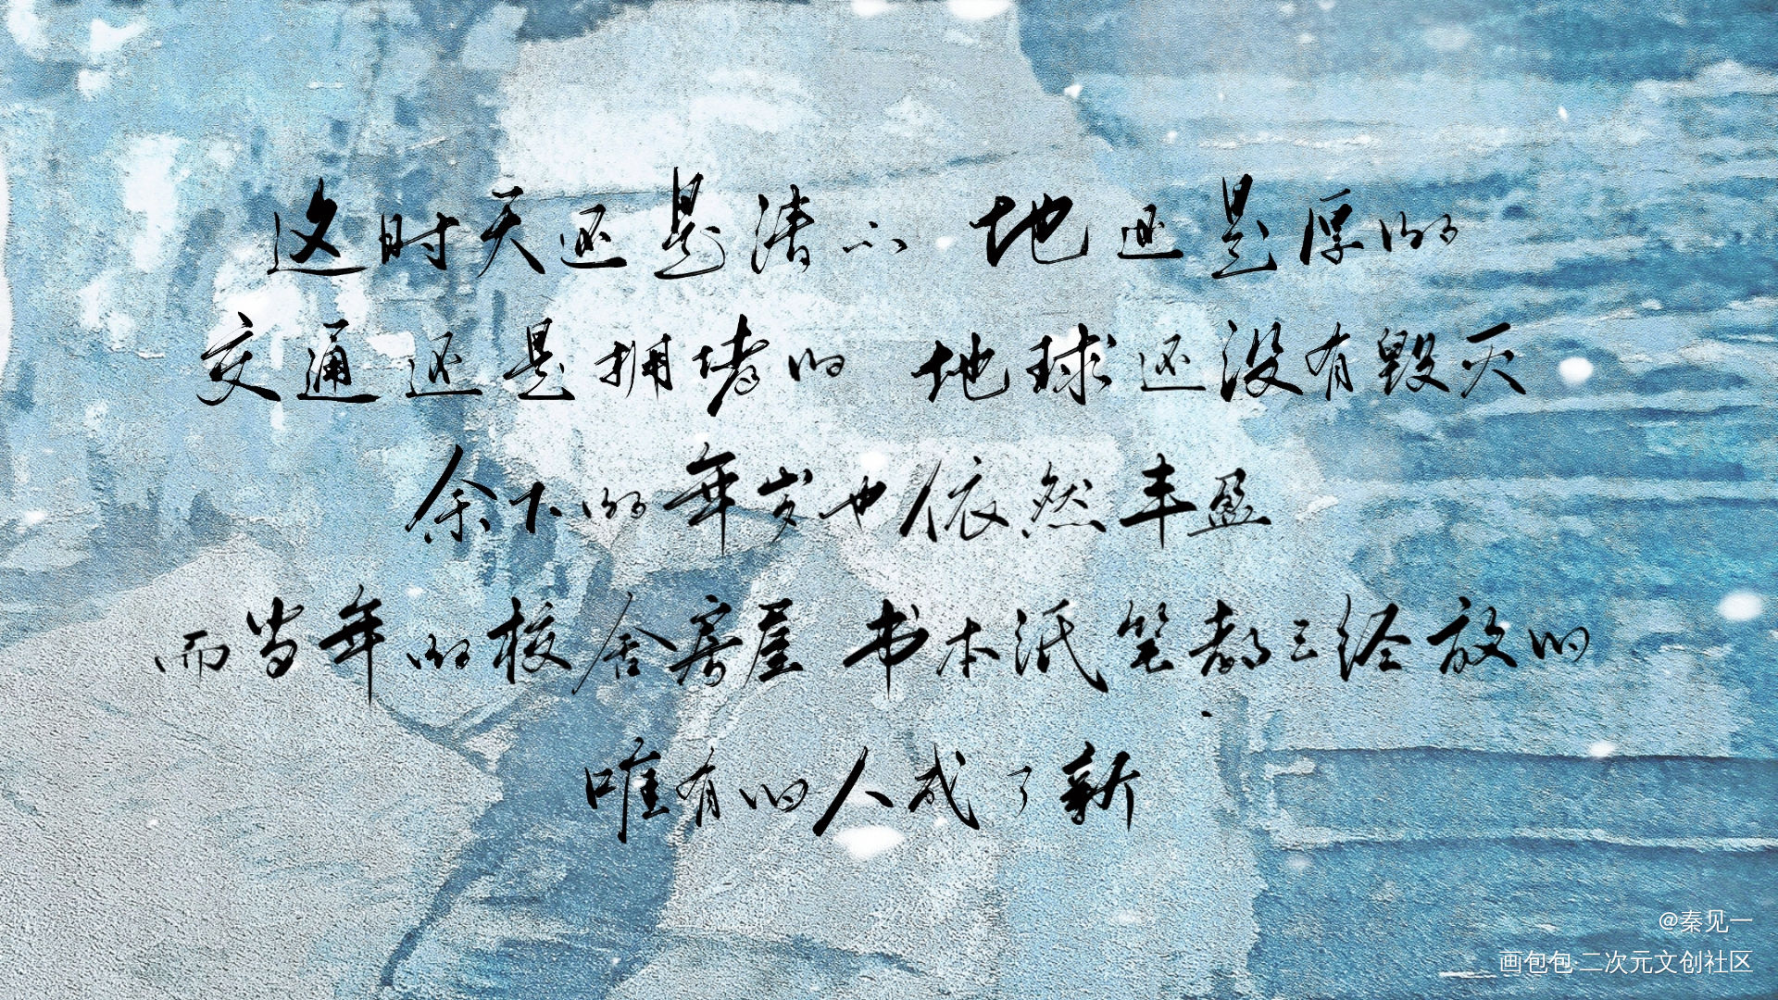 这时天还是清的 地还是厚的
交通还是拥堵的 地球还没有毁灭
余下的年岁也依然丰盈
而当年的校舍房屋 书本纸笔都已经放的
唯有的人成了新
@秦见一
画包包·二次元文创社区